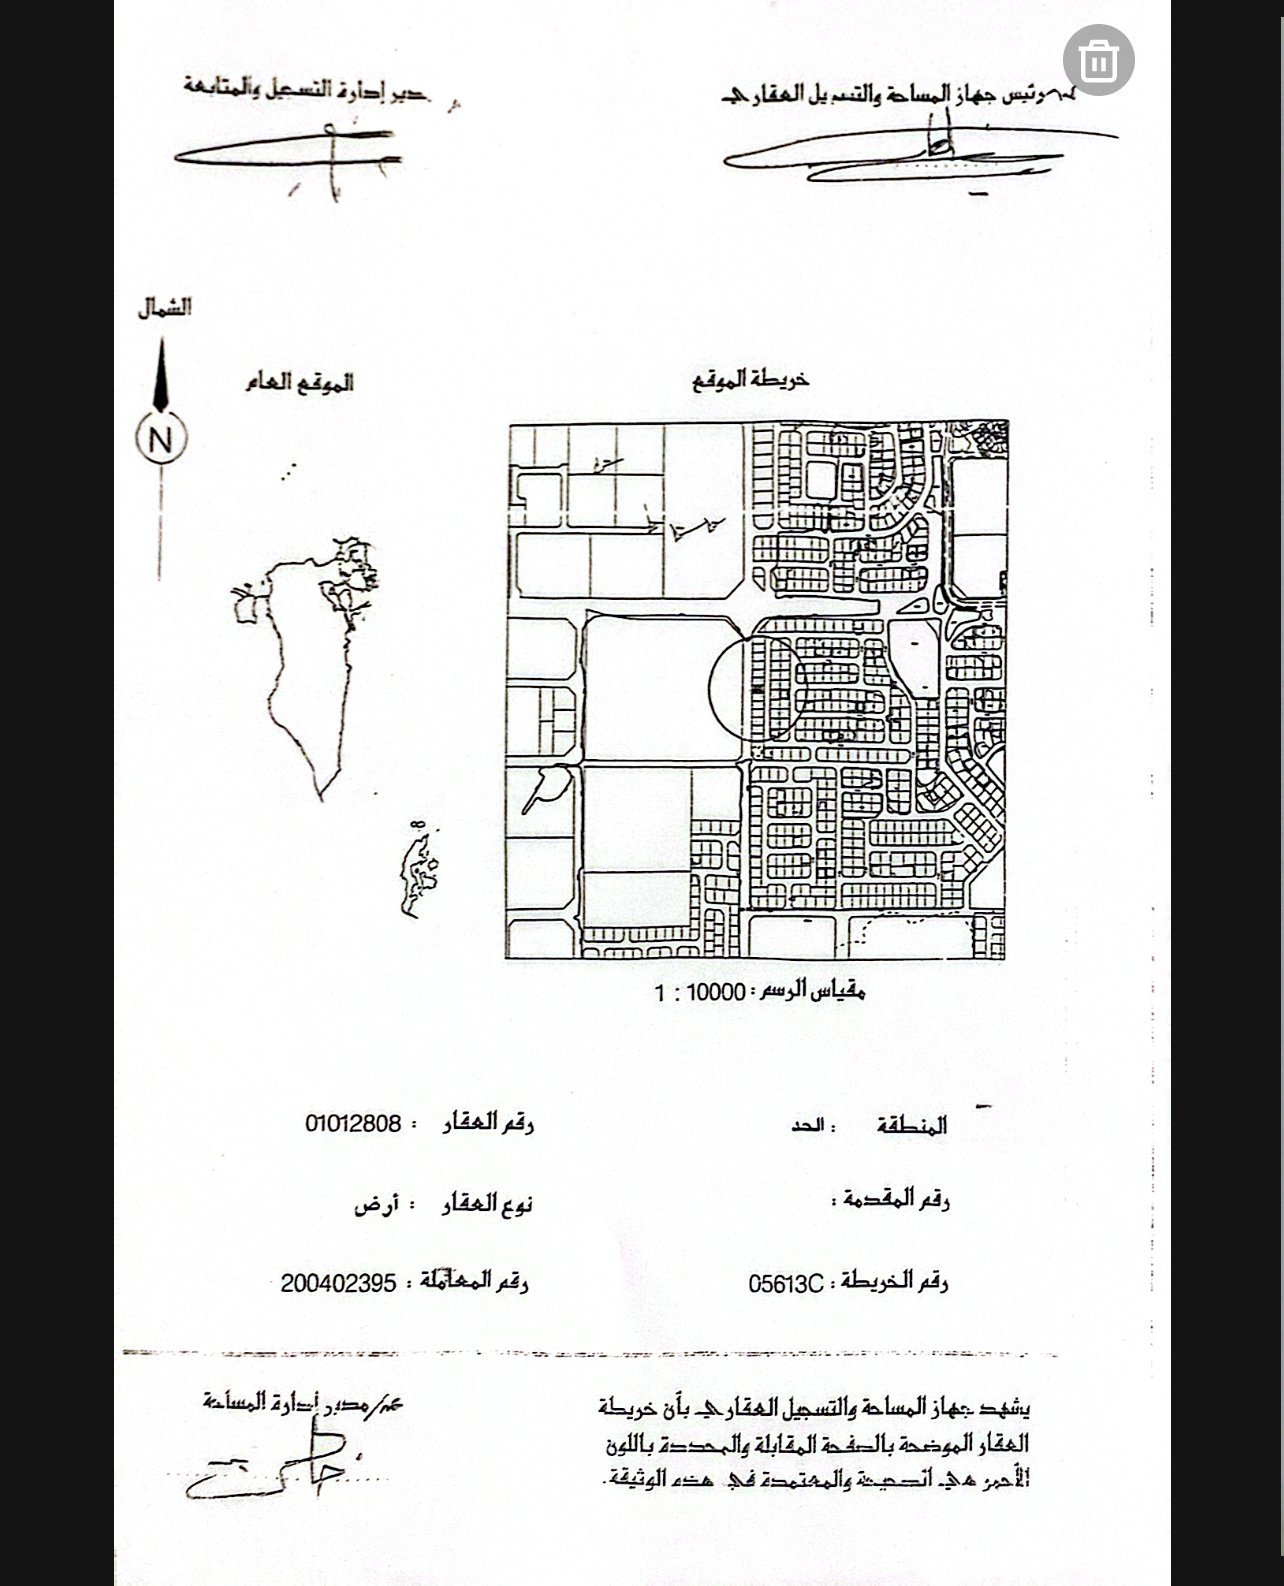 رئيس جهاز المساحة والتسجيل العقاري
مدير إدارة التسجيل والمتابعة
الشمال
N
خريطة الموقع
الموقع العام
مقياس الرسم : 10000 : 1
المنطقة : الحد
رقم العقار : 01012808
رقم المقدمة :
نوع العقار : أرض
رقم الخريطة : 05613C
رقم المعاملة : 200402395
يشهد جهاز المساحة والتسجيل العقاري بأن خريطة
العقار الموضحة بالصفحة المقابلة والمحددة باللون
الأحمر هي الصحيحة والمعتمدة في هذه الوثيقة.
عن/مدير إدارة المساحة